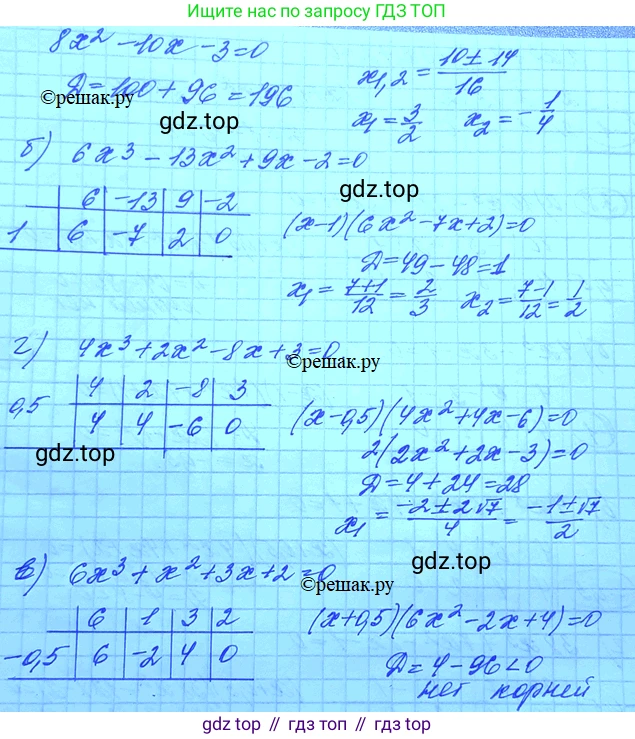 Ищите нас по запросу ГДЗ ТОП
8x² - 10x - 3 = 0
D = 100 + 96 = 196
x₁,₂ = (10 ± 14)/16
x₁ = 3/2 x₂ = -1/4
©решак.ру
gdz.top
б) 6x³ - 13x² + 9x - 2 = 0
6 | -13 | 9 | -2
1 | 6 | -7 | 2 | 0
(x-1)(6x² - 7x + 2) = 0
D = 49 - 48 = 1
x₁ = (7+1)/12 = 2/3 x₂ = (7-1)/12 = 1/2
gdz.top
г) 4x³ + 2x² - 8x + 3 = 0
©решак.ру
4 | 2 | -8 | 3
0,5 | 4 | 4 | -6 | 0
(x-0,5)(4x² + 4x - 6) = 0
2(2x² + 2x - 3) = 0
D = 4 + 24 = 28
x₁ = (-2 ± 2√7)/4 = (-1 ± √7)/2
gdz.top
gdz.top
в) 6x³ + x² + 3x + 2 = 0
©решак.ру
6 | 1 | 3 | 2
-0,5 | 6 | -2 | 4 | 0
(x+0,5)(6x² - 2x + 4) = 0
D = 4 - 96 < 0
нет корней
gdz top // гдз топ // gdz.top